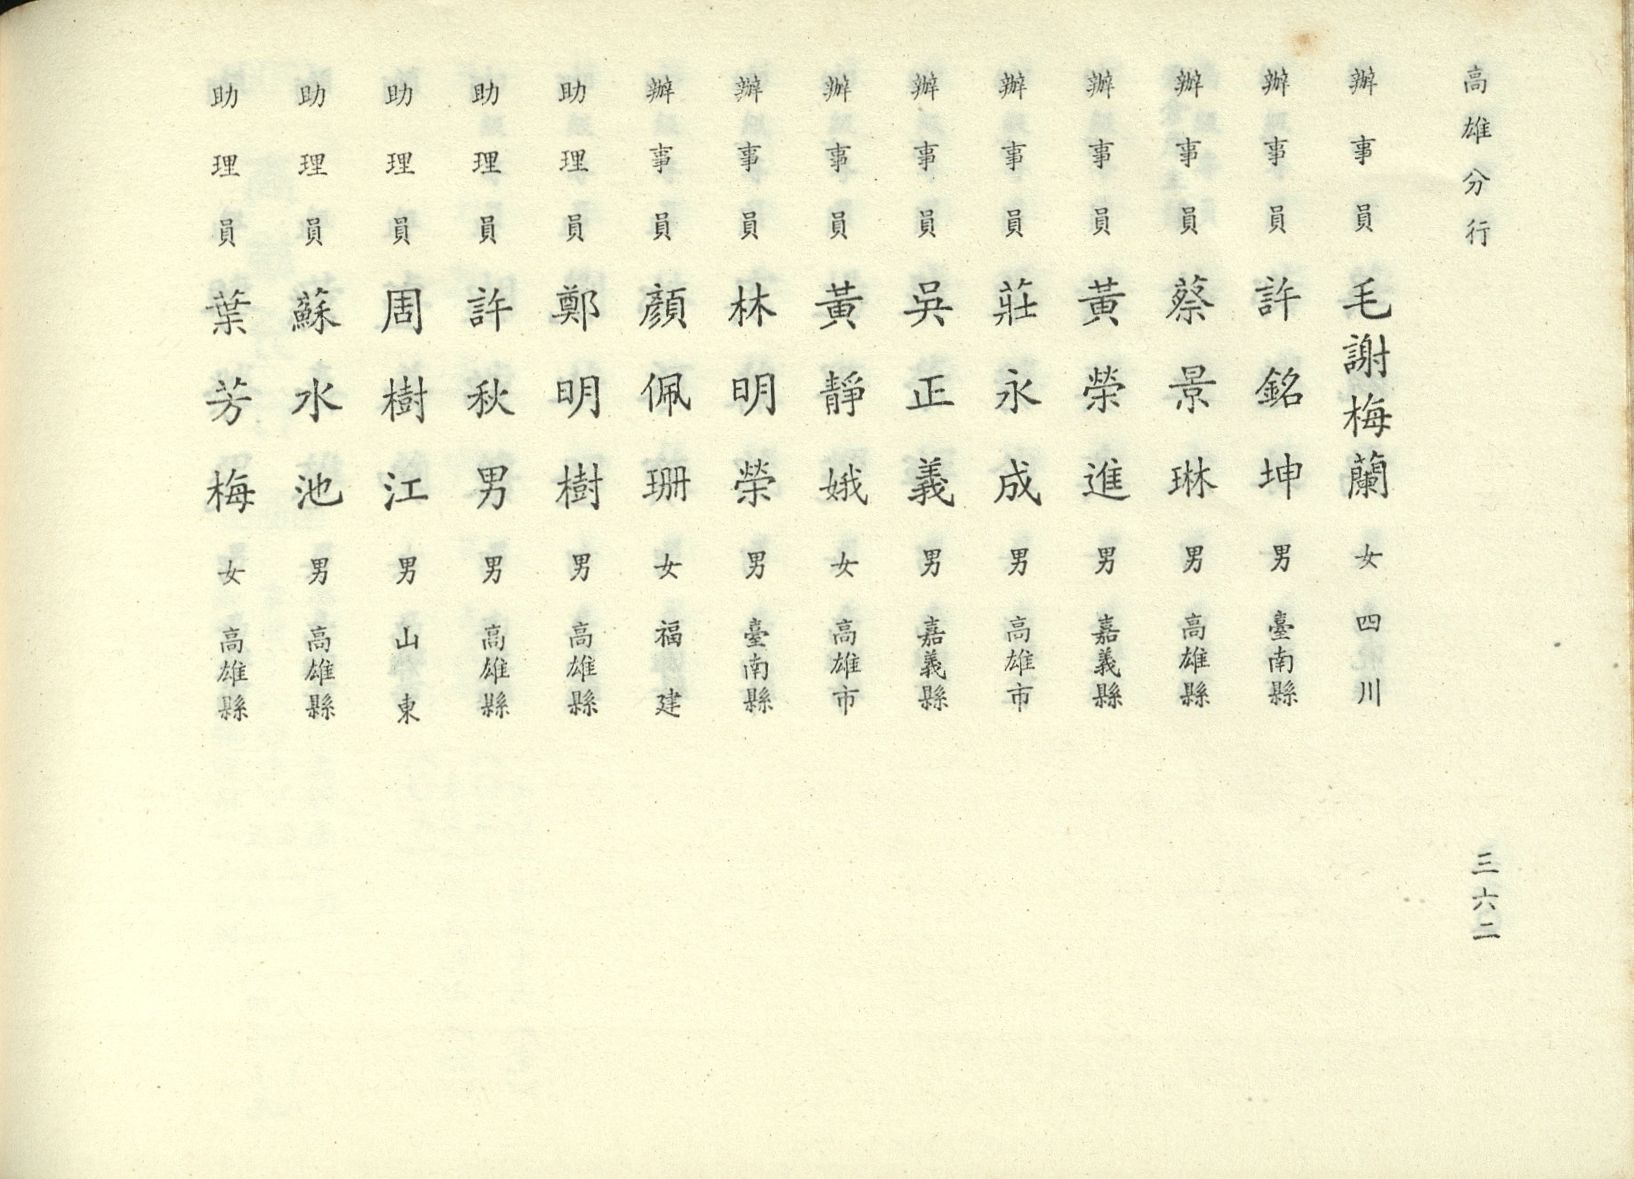 高雄分行
三六二
辦事員 毛謝梅蘭 女 四川
辦事員 許銘坤 男 臺南縣
辦事員 蔡景琳 男 高雄縣
辦事員 黃榮進 男 嘉義縣
辦事員 莊永成 男 高雄市
辦事員 吳正義 男 嘉義縣
辦事員 黃靜娥 女 高雄市
辦事員 林明榮 男 臺南縣
辦事員 顏佩珊 女 福建
助理員 鄭明樹 男 高雄縣
助理員 許秋男 男 高雄縣
助理員 周樹江 男 山東
助理員 蘇水池 男 高雄縣
助理員 葉芳梅 女 高雄縣